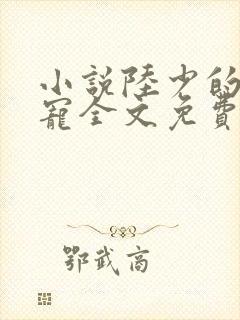 小說陸少的
寵全文免費
鄂武高